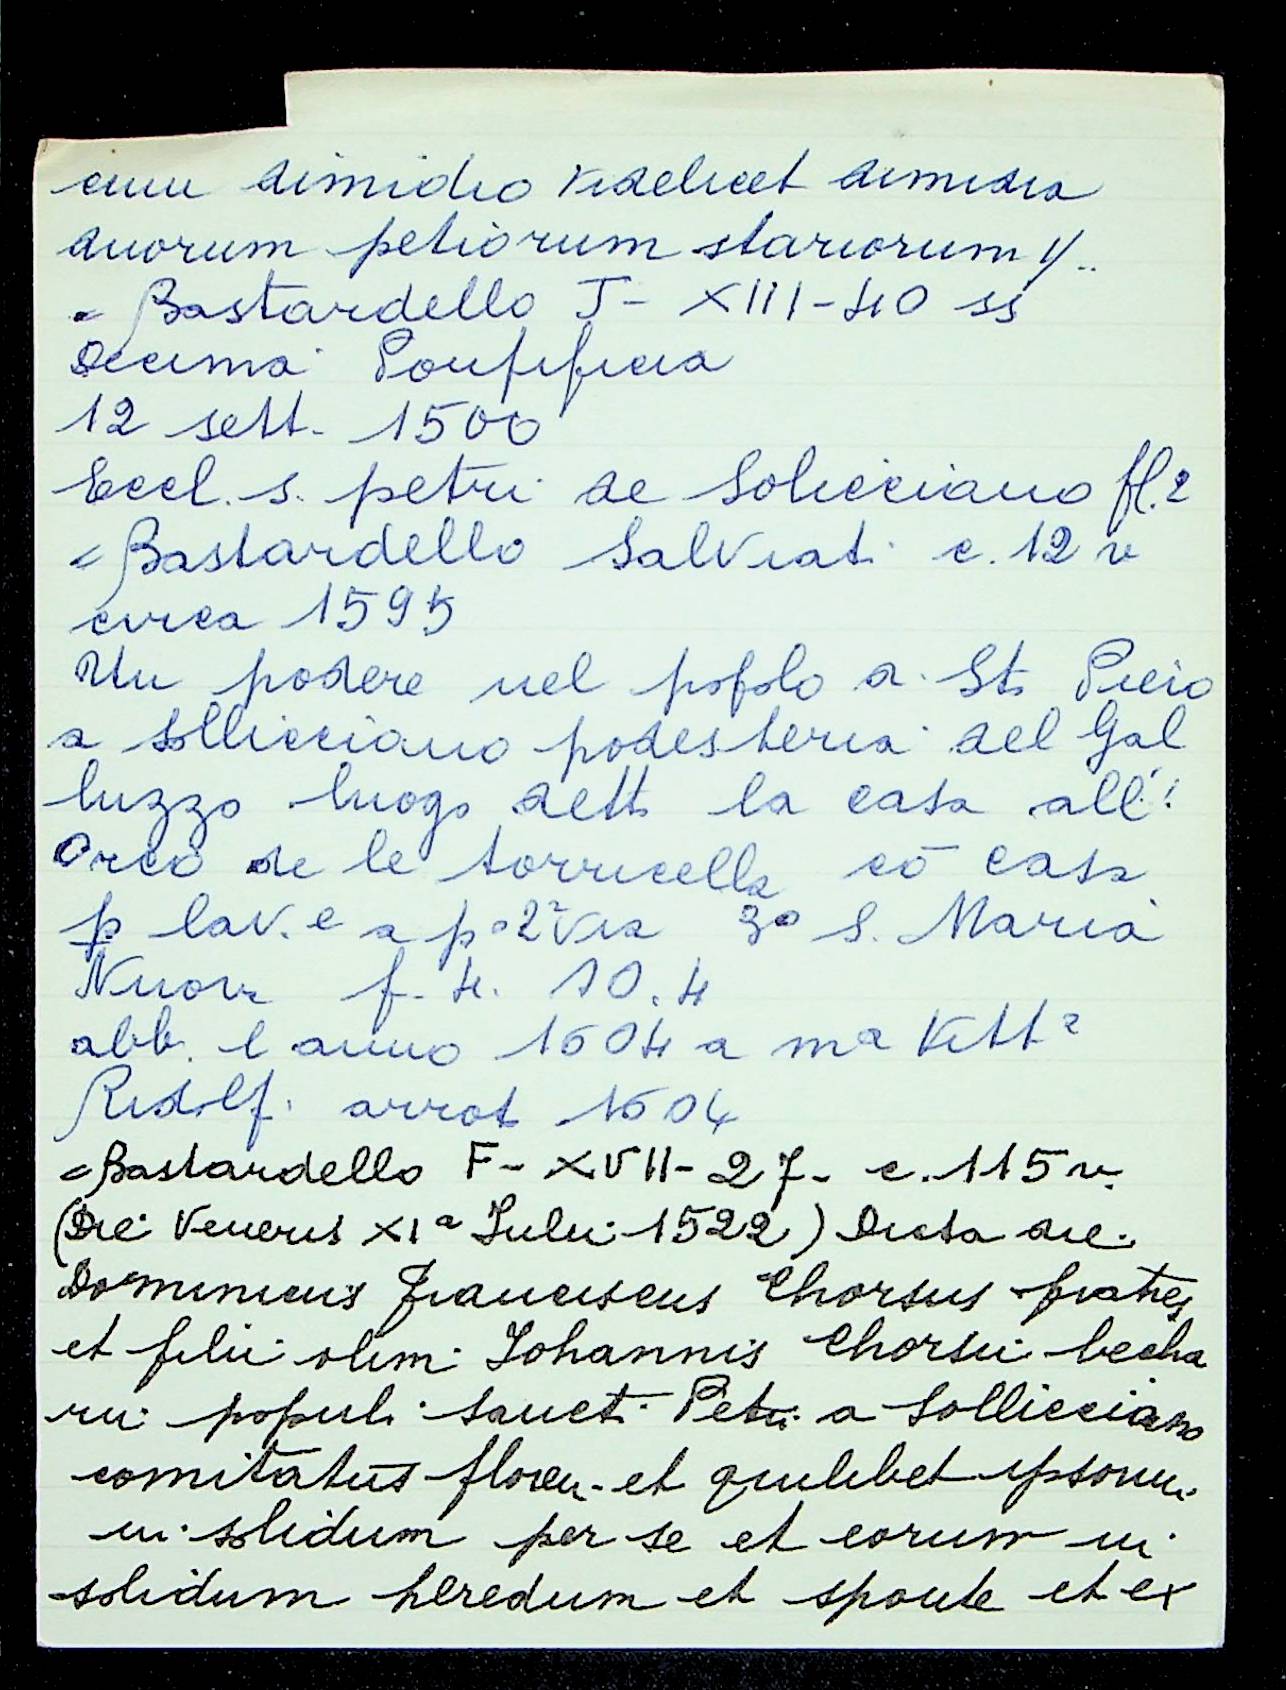 cum dimidio videlicet dimidia
duorum petiorum stariorum 4..
= Bastardello J - XIII - 40 ss
Decima Pontificia
12 sett. 1500
Eccl. s. petri de Solicciano fl. 2
= Bastardello Salviati c. 12 v
circa 1595
Un podere nel popolo a. Sto Piero
a sollicciano podesteria del Gal
luzzo luogo detto la casa all'
Orco de le torricella cō casa
p lav. e a p° 2° via 3° S. Maria
Nuova f. 4. 10. 4
abb. l anno 1604 a mª Vettª
Ridolfi arrot 1604
= Bastardello F - XVII - 27 - c. 115 v.
(Die Veneris XIª Iulii 1522) Dicta die.
Dominicus Franciscus Chorsus fratres
et filii olim Iohannis Chorsii becha
rii populi sancti Petri a Sollicciano
comitatus floren. et quilibet ipsorum
in solidum per se et eorum in
solidum heredum et sponte et ex